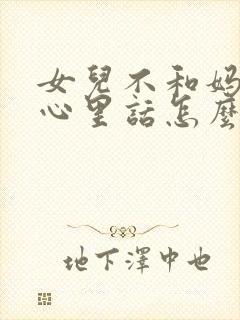 女兒不和媽
心里話怎麼
地下澤中也